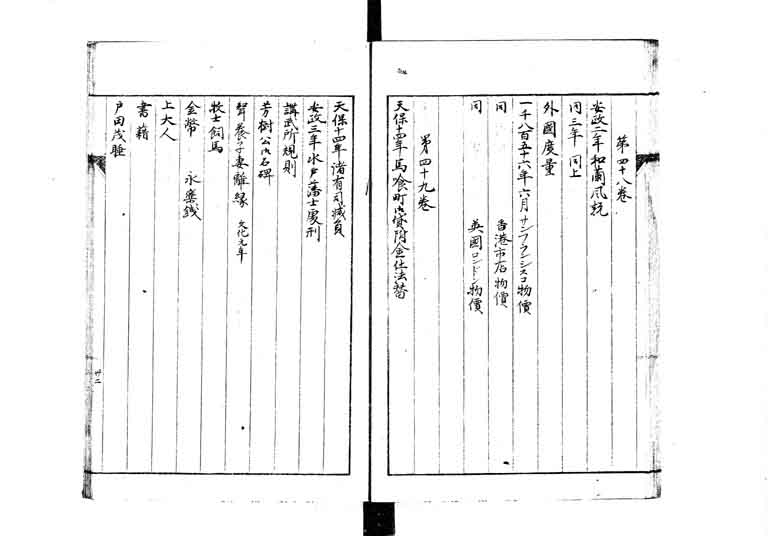 第四十八巻
安政二年和蘭風説
同三年同上
外國度量
一千八百五十六年六月サンフランシスコ物價
同 香港市店物價
同 英國ロンドン物價
第四十九巻
天保十四年馬喰町御貸附金仕法替
天保十四年諸有司減員
安政三年水戸藩士處刑
講武所規則
芳樹公御石碑
聟養子妻離縁 文化元年
牧士飼馬
金幣 永楽銭
上大人
書籍
戸田茂睡
廿二